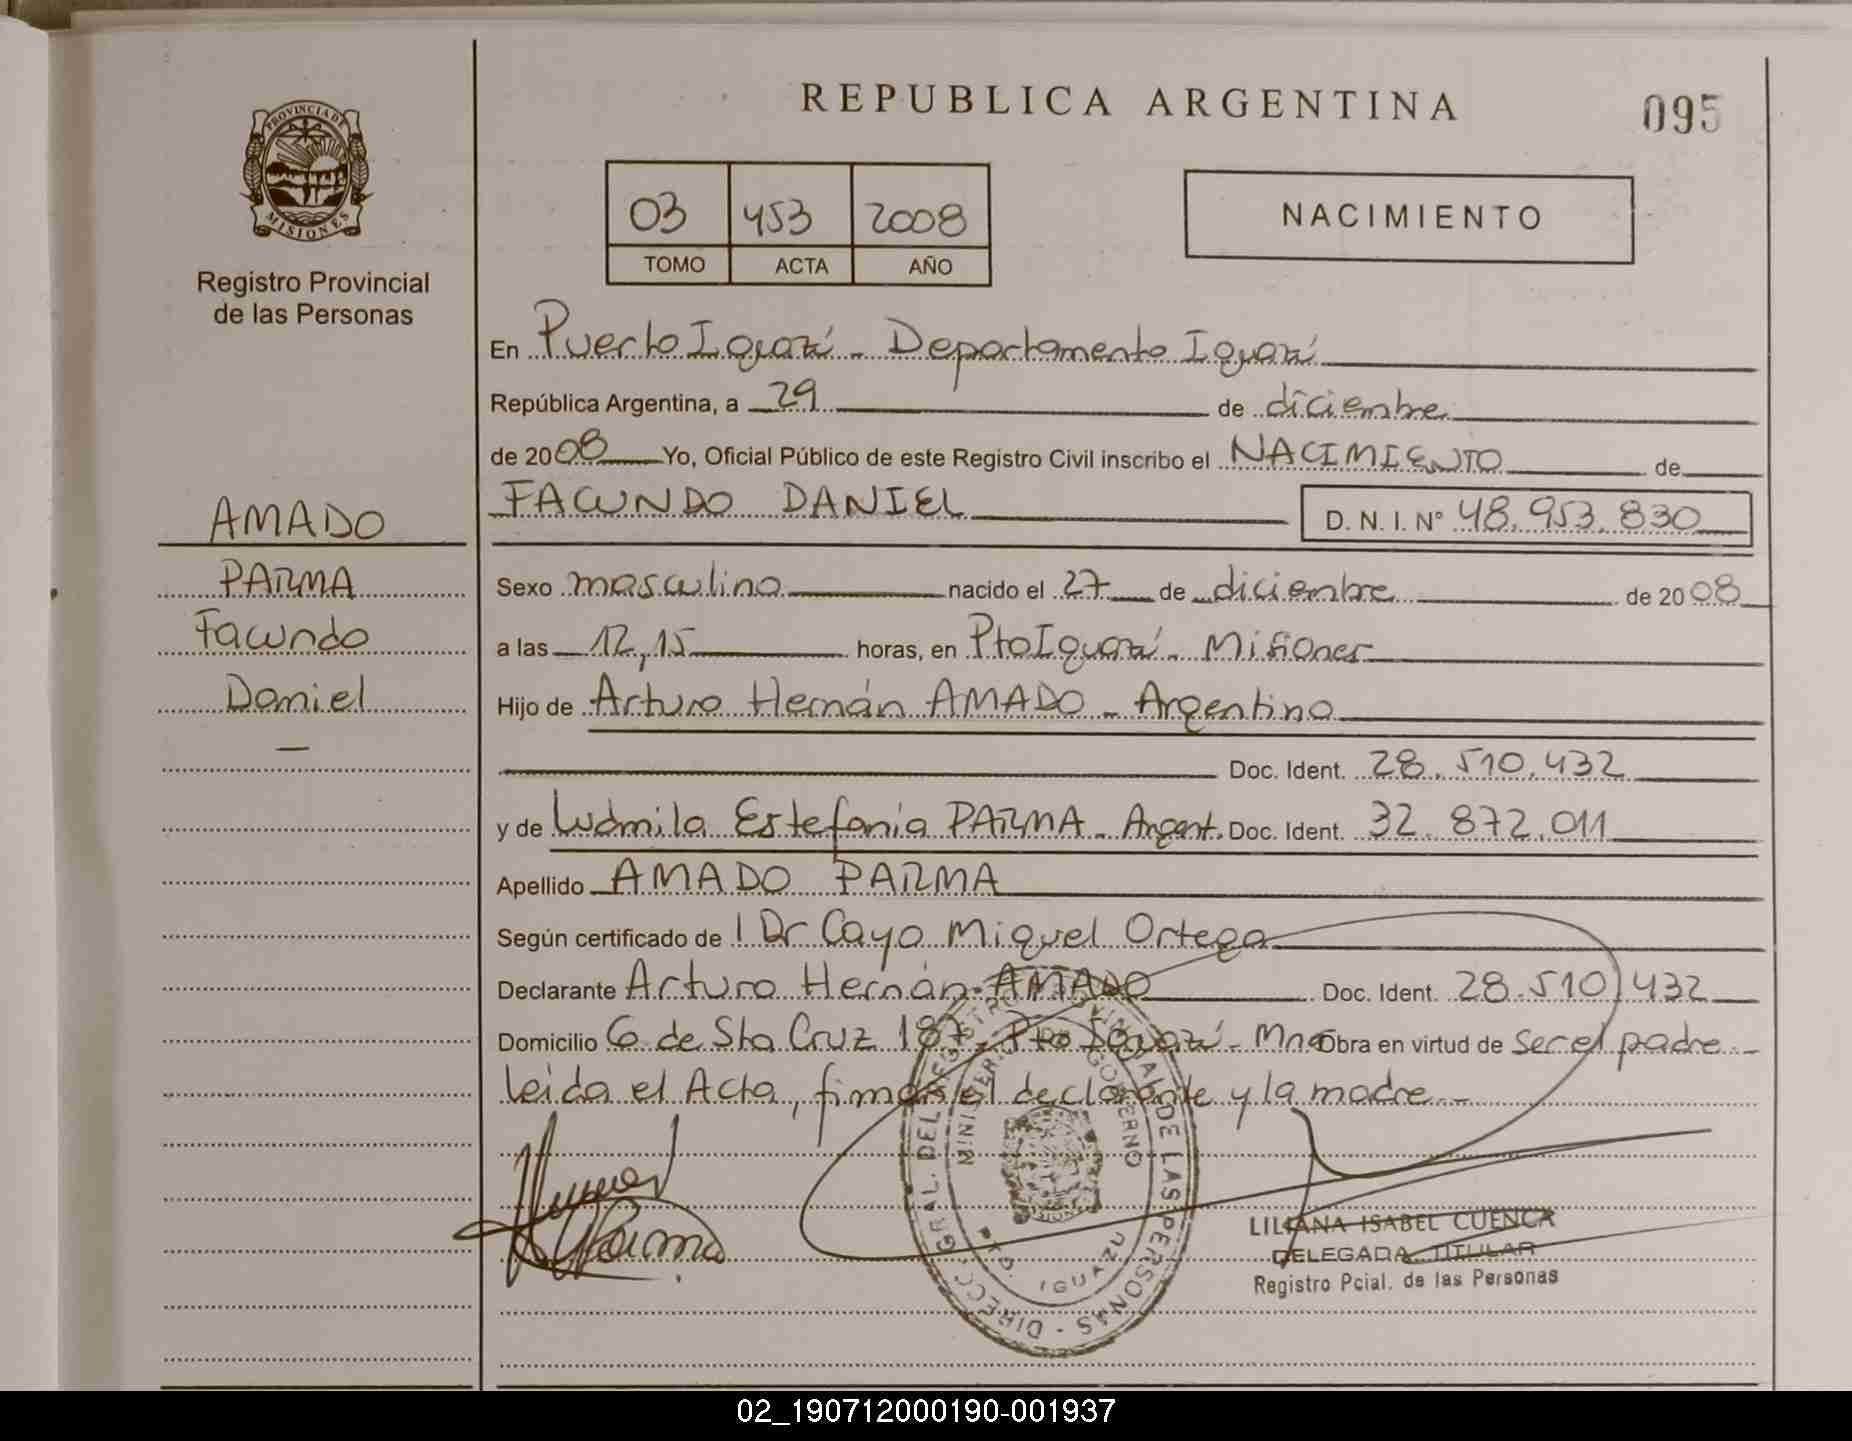 REPUBLICA ARGENTINA
095
PROVINCIA DE
MISIONES
Registro Provincial
de las Personas
03 453 2008
TOMO ACTA AÑO
NACIMIENTO
En Puerto Iguazú - Departamento Iguazú
República Argentina, a 29 de diciembre
de 2008 Yo, Oficial Público de este Registro Civil inscribo el NACIMIENTO de
FACUNDO DANIEL D. N. I. Nº 48.953.830
AMADO
PARMA
Facundo
Daniel
Sexo masculino nacido el 27 de diciembre de 2008
a las 12,15 horas, en Pto Iguazú - Misiones
Hijo de Arturo Hernán AMADO - Argentino
Doc. Ident. 28.510.432
y de Ludmila Estefanía PARMA - Argent. Doc. Ident. 32.872.011
Apellido AMADO PARMA
Según certificado de l Dr Cayo Miguel Ortega
Declarante Arturo Hernán AMADO Doc. Ident. 28.510.432
Domicilio G de Sta Cruz 187 - Pto Iguazú - Mnes Obra en virtud de ser el padre -
leida el Acta, firman el declarante y la madre -
DIRECC. GRAL. DEL REGISTRO PROVINCIAL DE LAS PERSONAS
MINISTERIO DE GOBIERNO
PTO. IGUAZU
LILIANA ISABEL CUENCA
DELEGADA TITULAR
Registro Pcial. de las Personas
02_190712000190-001937